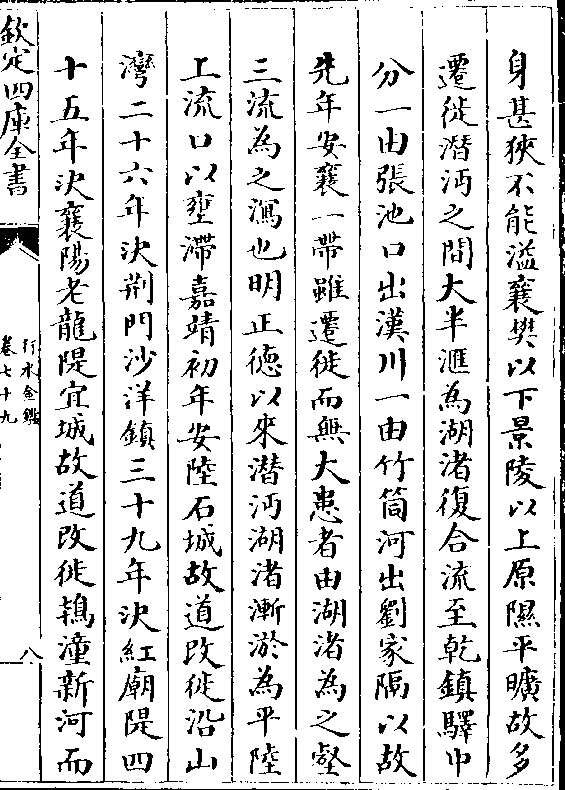 身甚狹不能溢襄樊以下景陵以上原隰平曠故多
遷徙潛沔之間大半滙為湖渚復合流至乾鎮驛中
分一由張池口出漢川一由竹筒河出劉家隔以故
先年安襄一帶雖遷徙而無大患者由湖渚為之壑
三流為之瀉也明正德以來潛沔湖渚漸淤為平陸
上流口以壅滯嘉靖初年安陸石城故道改徙沿山
灣二十六年決荆門沙洋鎮三十九年決紅廟隄四
十五年決襄陽老龍隄宜城故道改徙鴇潼新河而
欽定四庫全書
行水金鑑
卷七十九
八